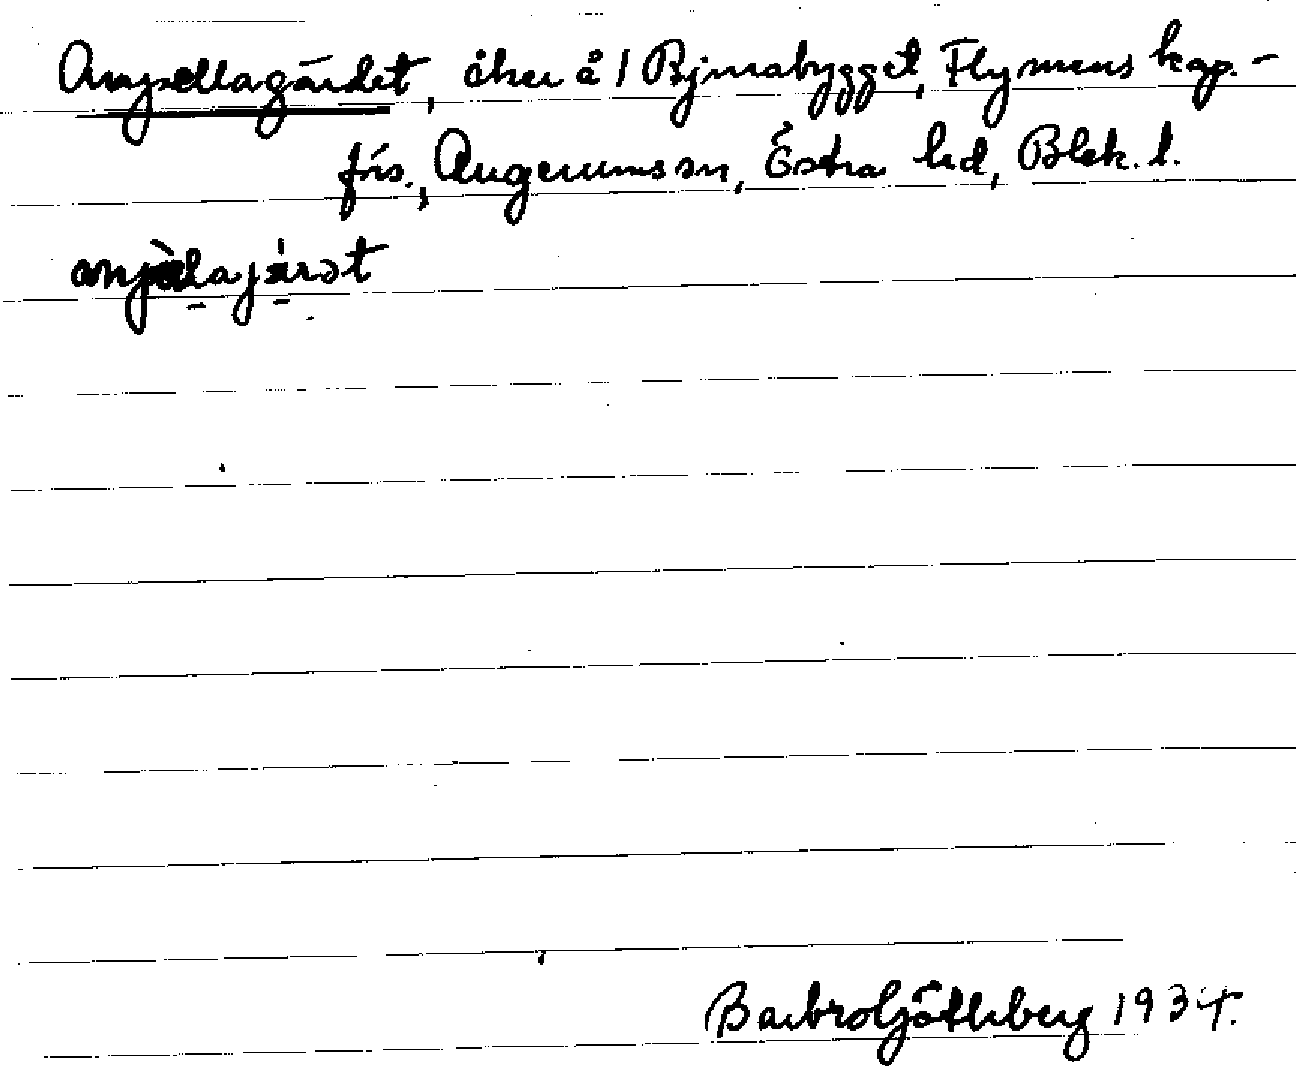 Anyellagärdet, åker å 1 Bjmabygget, Flymens kap.-
förs., Augerums sn, Östra hd, Blek. l.
Barbro Götheberg 1934.